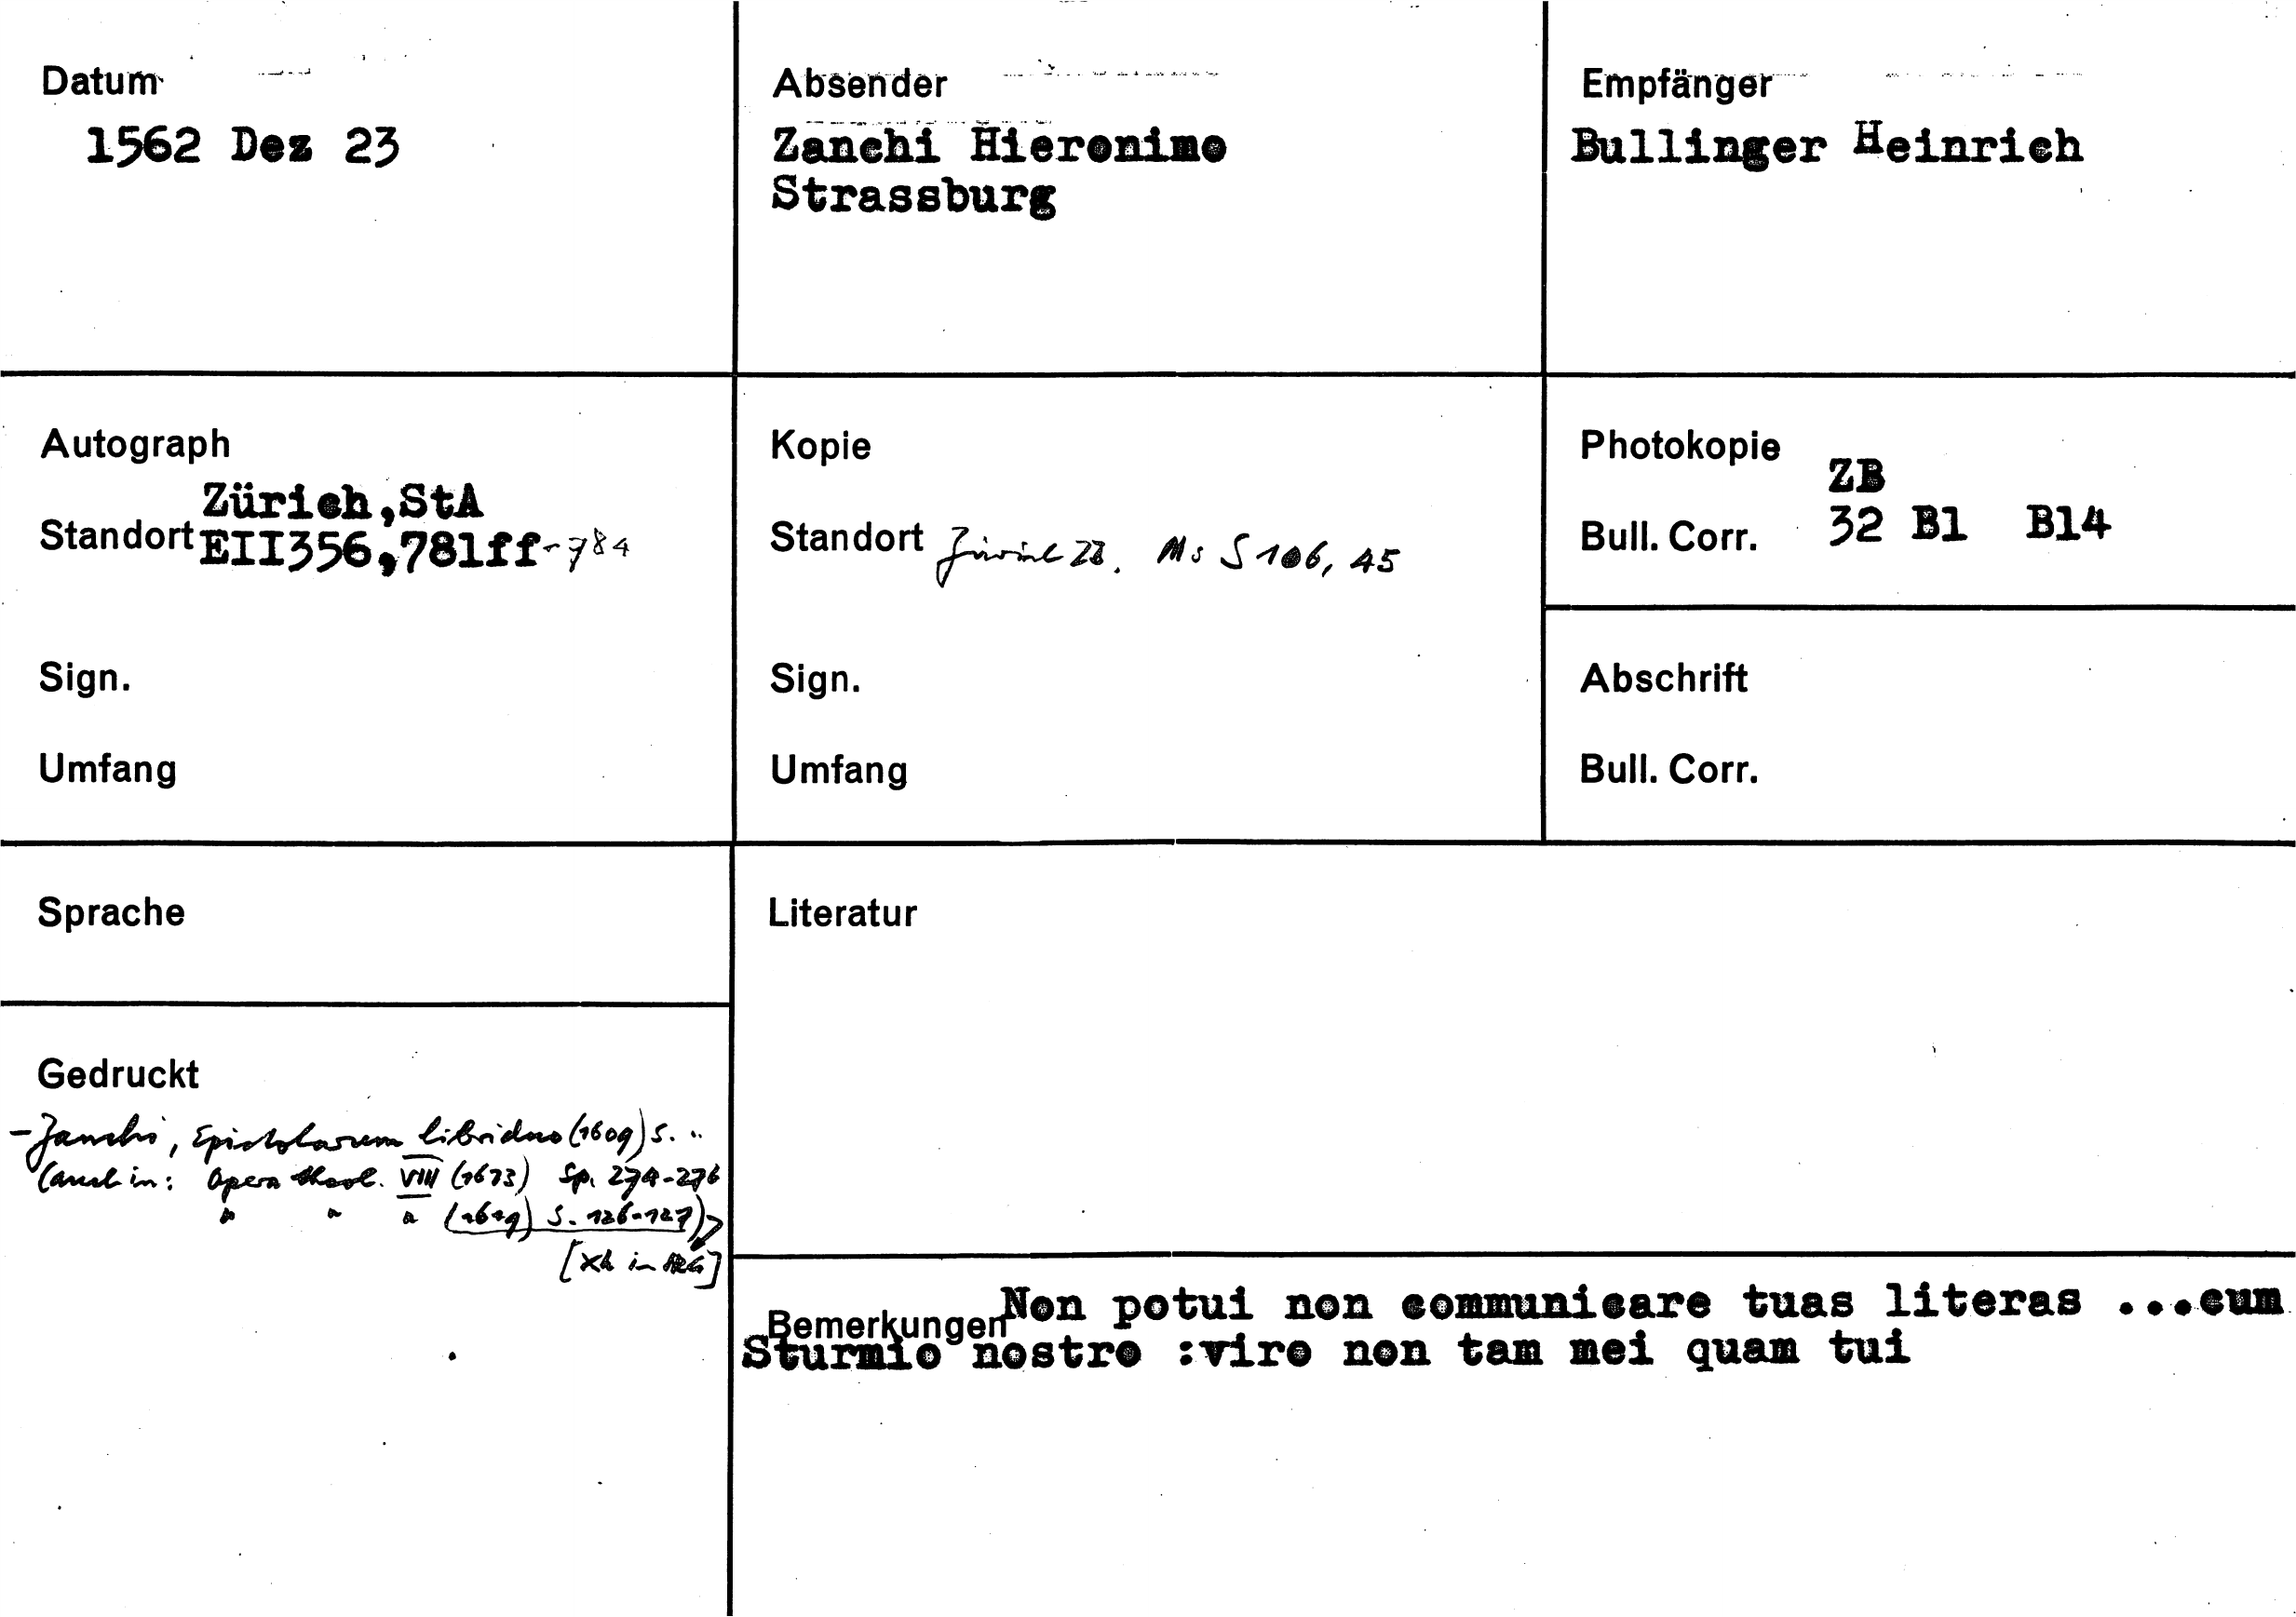 Datum
1562 Dez 23
Absender
Zanchi Hieronimo
Strassburg
Empfänger
Bullinger Heinrich
Autograph
Zürich,StA
Standort EII356,781ff-784
Sign.
Umfang
Kopie
Standort Zürich ZB. Ms S 106, 45
Sign.
Umfang
Photokopie
ZB
Bull. Corr. 32 B1 B14
Abschrift
Bull. Corr.
Sprache
Literatur
Gedruckt
- Zanchi, Epistolarum libri duo (1609) S. ..
(auch in: Opera theol. VIII (1613) Sp. 274-276
" " " (1649) S. 126-127)
[Xk in]
Bemerkungen Non potui non communicare tuas literas ...cum
Sturmio nostro :viro non tam mei quam tui